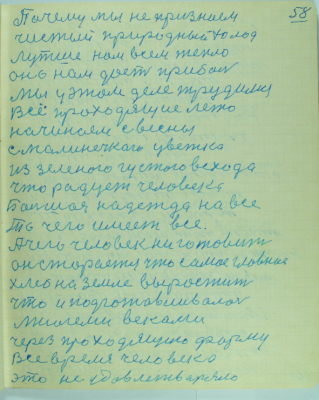 58
Почему мы не признаем
чистый природный холод
лутше нам всем тепло
оно нам дает прибал
мы у этом деле трудимы
Всё проходящие лето
начинаем с весны
с малинечкаго цветка
из зеленого густого всхода
что радует человека
Болшая надежда на все
То чего имеет все.
А чего человек ни готовит
он старается что самое главное
хлеб на земле выростит
что и подготавливалос
многеми веками
через проходящую форму
Все время человека
это не удовлетваряло